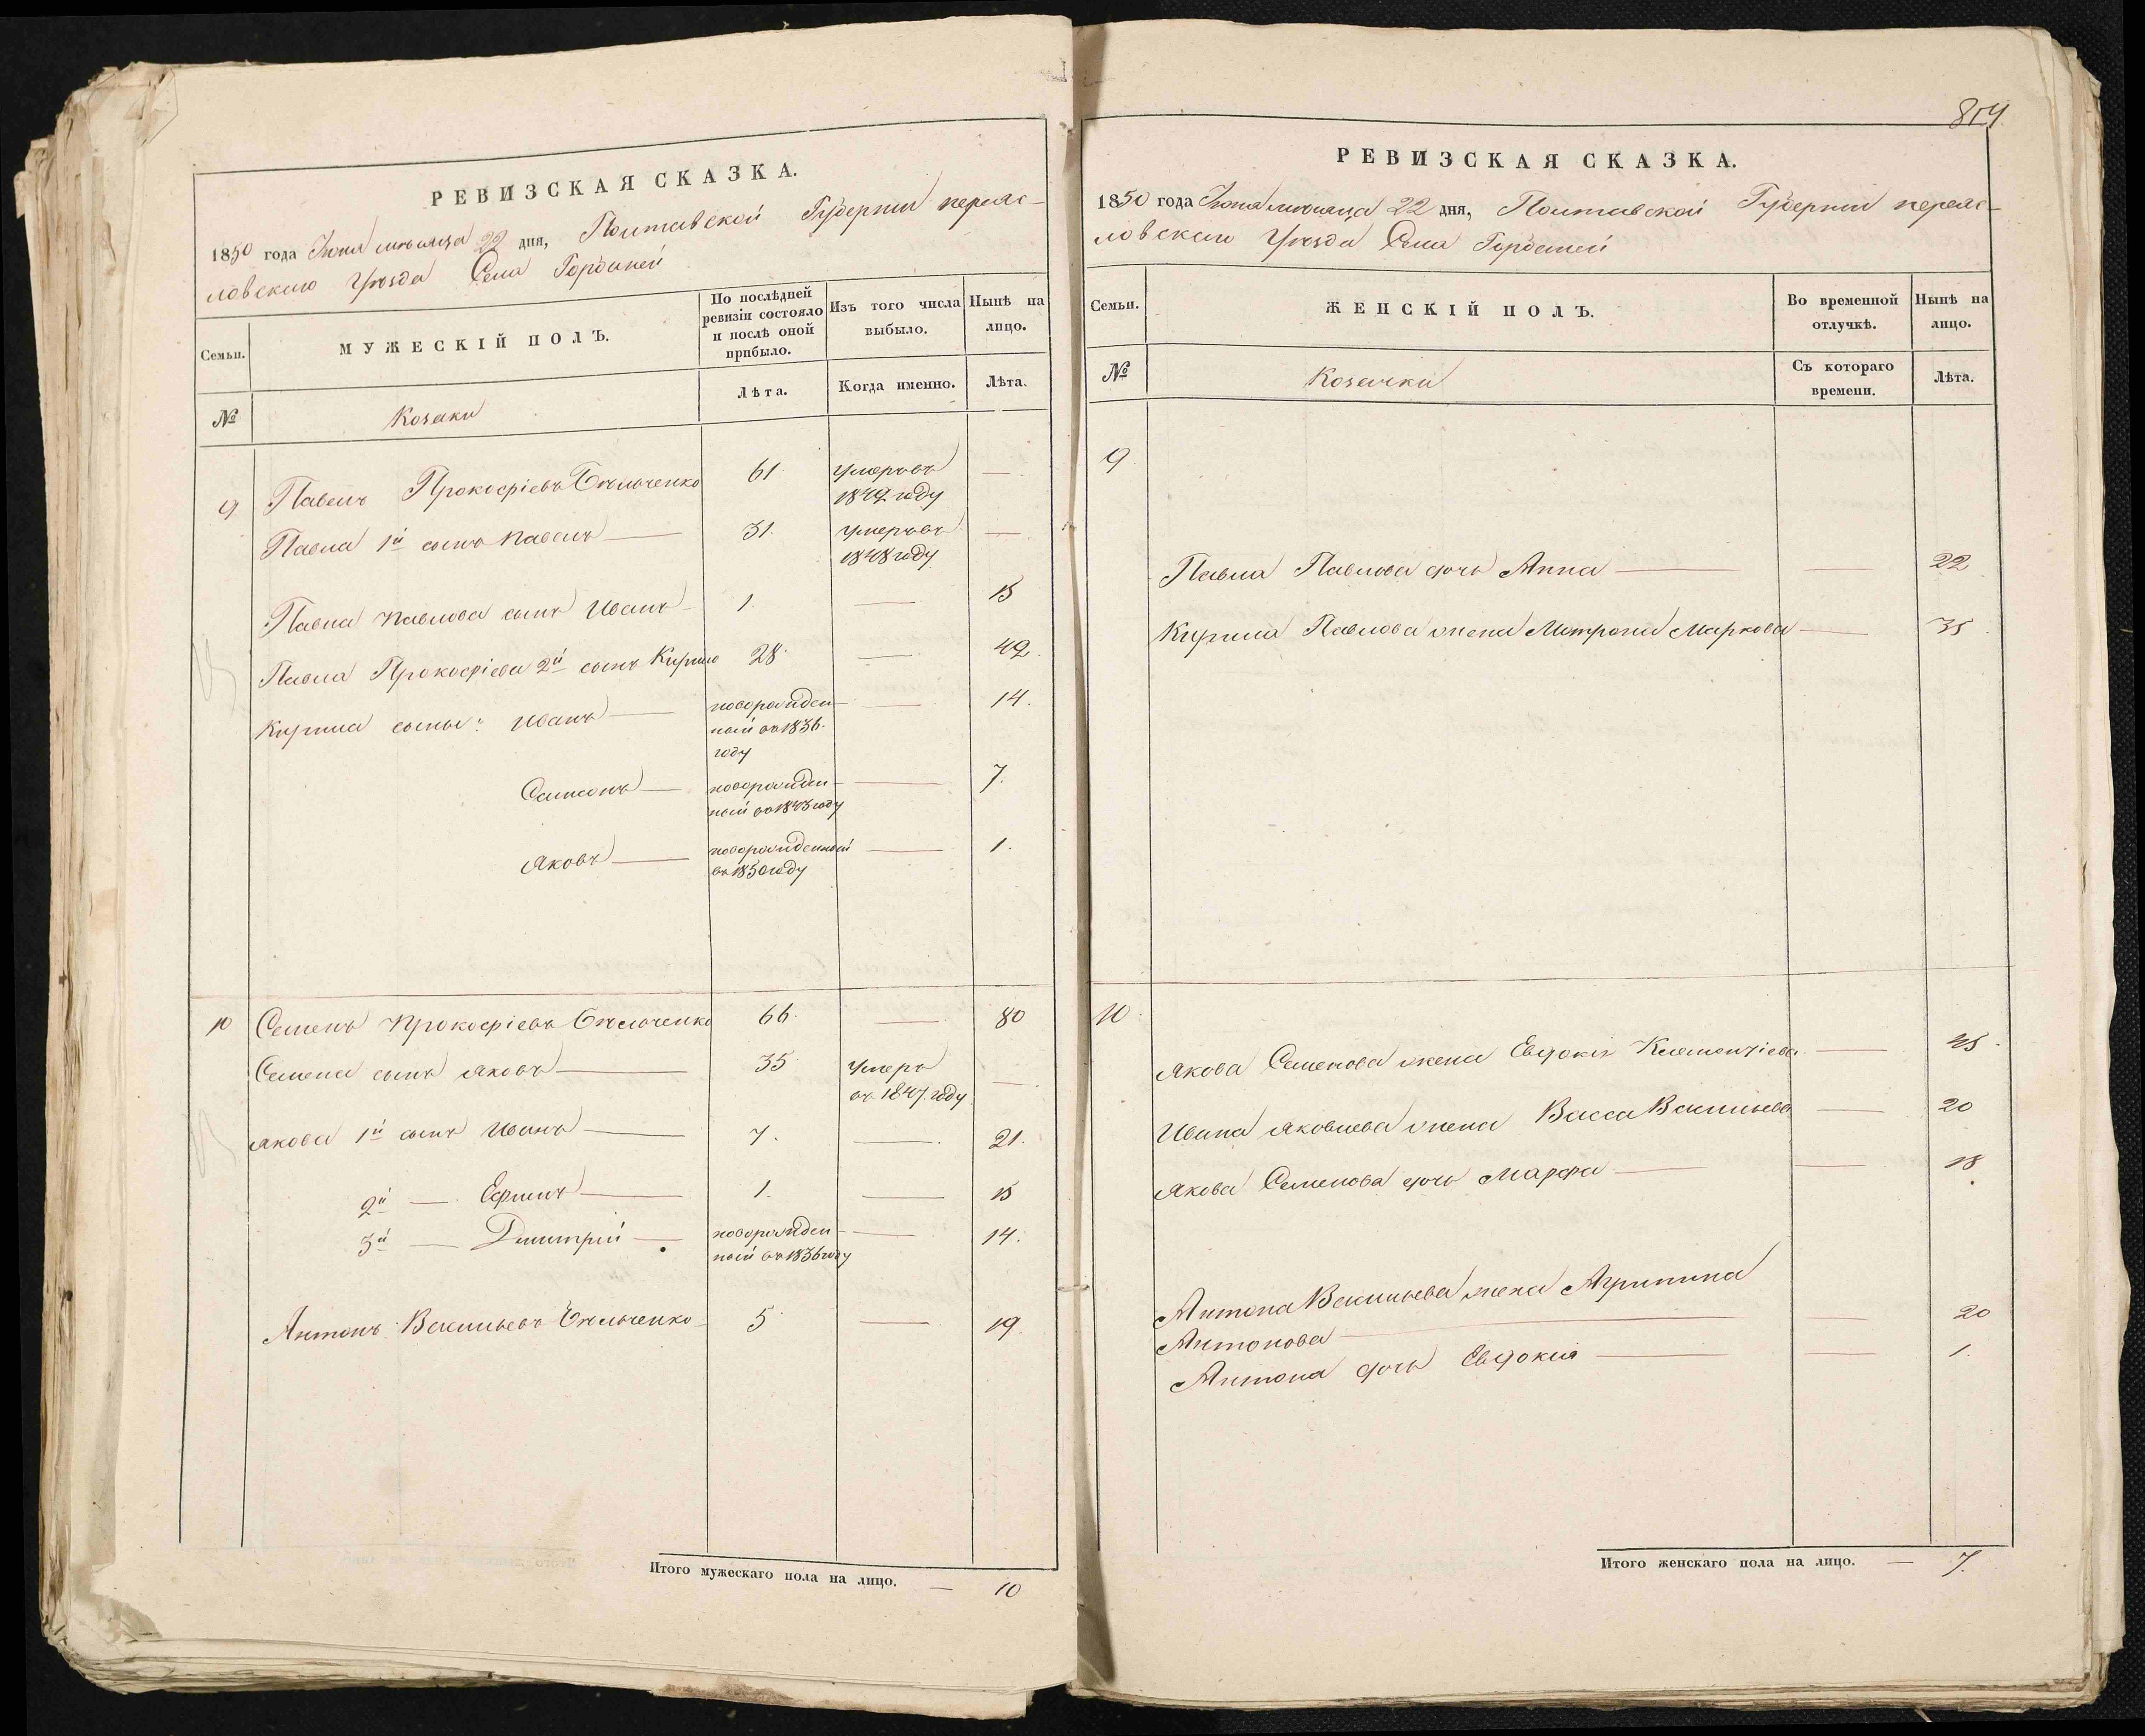 РЕВИЗСКАЯ СКАЗКА.
1850 года Іюня мѣсяца 22 дня, Полтавской Губерніи переяс-
ловскаго Уѣзда Села Горбаней
Семьи.
МУЖЕСКІЙ ПОЛЪ.
По послѣдней ревизіи состояло и послѣ оной прибыло.
Изъ того числа выбыло.
Нынѣ на лицо.
№
Козаки
Лѣта.
Когда именно.
Лѣта.
9 Павелъ Прокофіевъ Бѣльченко 61 умеръ въ 1849 году —
Павла 1й сынъ Павелъ — 31. умеръ въ 1848 году —
Павла Павлова сынъ Иванъ 1. — 15
Павла Прокофіева 2й сынъ Кирило 28 — 42.
Кирила сыны: Иванъ — новорожден-
ный въ 1836. году — 14.
Самсонъ — новорожден-
ный въ 1843 году — 7.
Яковъ — новорожденный
въ 1850 году — 1.
10 Семенъ Прокофіевъ Бѣльченко 66. — 80
Семена сынъ Яковъ — 35 Умеръ
въ 1847. году —
Якова 1й сынъ Иванъ — 7. — 21.
2й — Ефимъ — 1. — 15
3й — Дмитрій — новорожден-
ный въ 1836 году — 14.
Антонъ Васильевъ Бѣльченко 5 — 19.
Итого мужескаго пола на лицо. — 10
РЕВИЗСКАЯ СКАЗКА.
1850 года Іюня мѣсяца 22 дня, Полтавской Губерніи переяс-
ловскаго Уѣзда Села Горбаней
Семьи.
ЖЕНСКІЙ ПОЛЪ.
Во временной отлучкѣ.
Нынѣ на лицо.
№
Козачки
Съ котораго времени.
Лѣта.
9.
Павла Павлова дочь Анна — — 22
Кирила Павлова жена Мотрона Маркова — 35
10.
Якова Семенова жена Евдокія Климентіева — 45.
Ивана Яковлева жена Васса Васильева — 20
Якова Семенова дочь Марфа — — 18
Антона Васильева жена Агрипина
Антонова — — 20
Антона дочь Евдокія — — 1.
Итого женскаго пола на лицо. — 7.